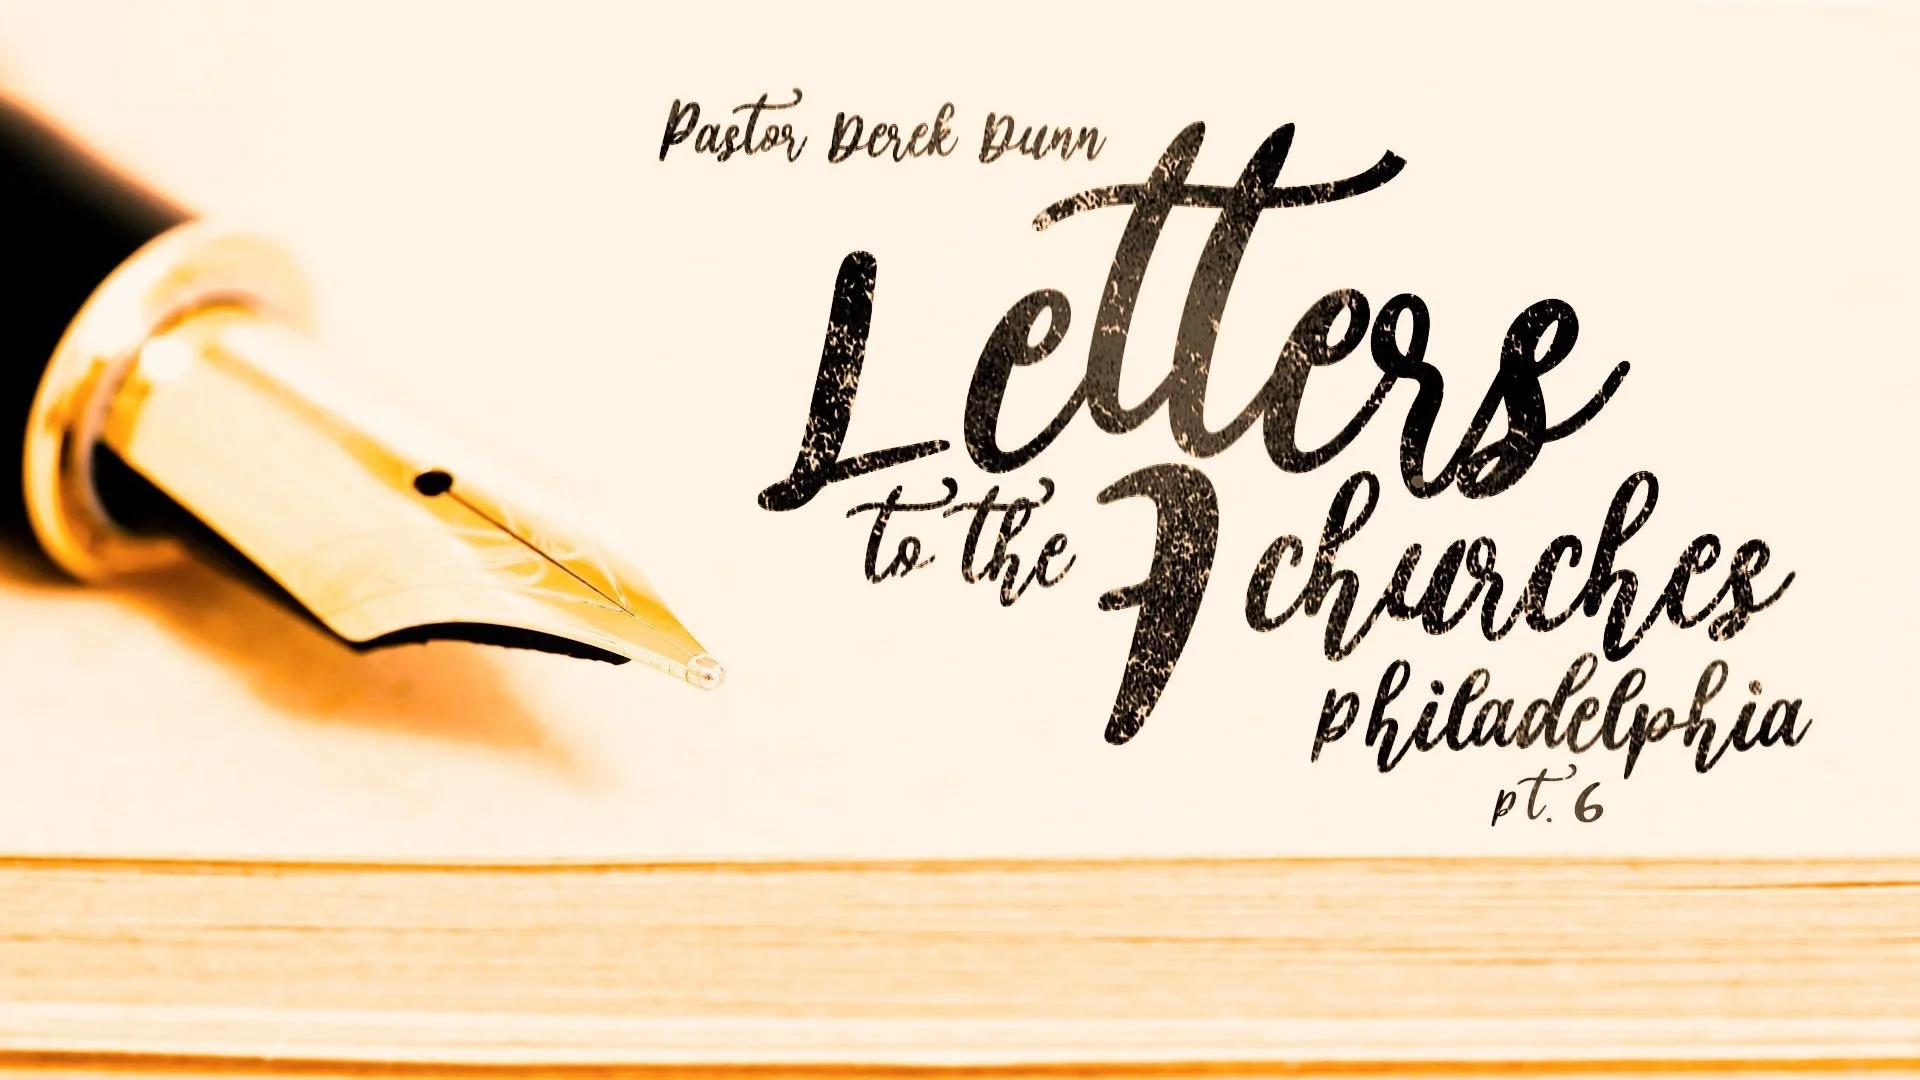 Pastor Derek Dunn
Letters
to the 7 churches
philadelphia
pt. 6